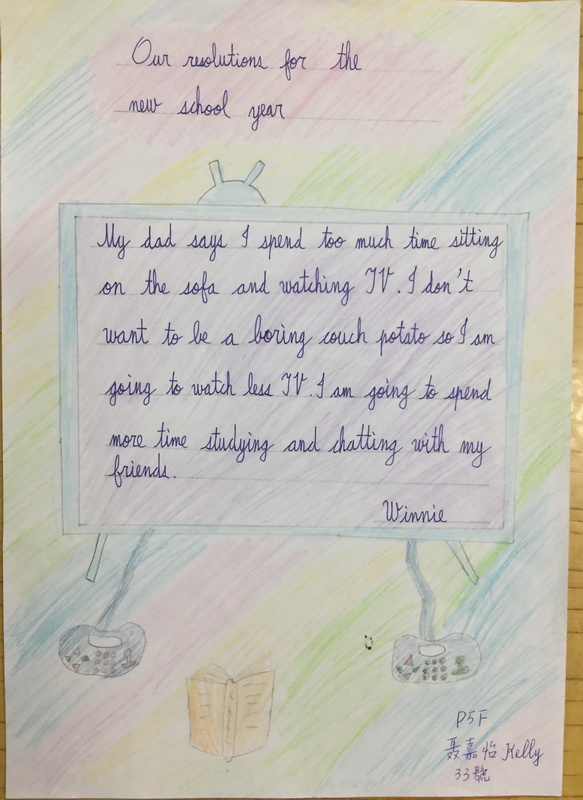 Our resolutions for the
new school year
My dad says I spend too much time sitting
on the sofa and watching TV. I don't
want to be a boring couch potato so I am
going to watch less TV. I am going to spend
more time studying and chatting with my
friends.
Winnie
P5F
聶嘉怡 Kelly
33號